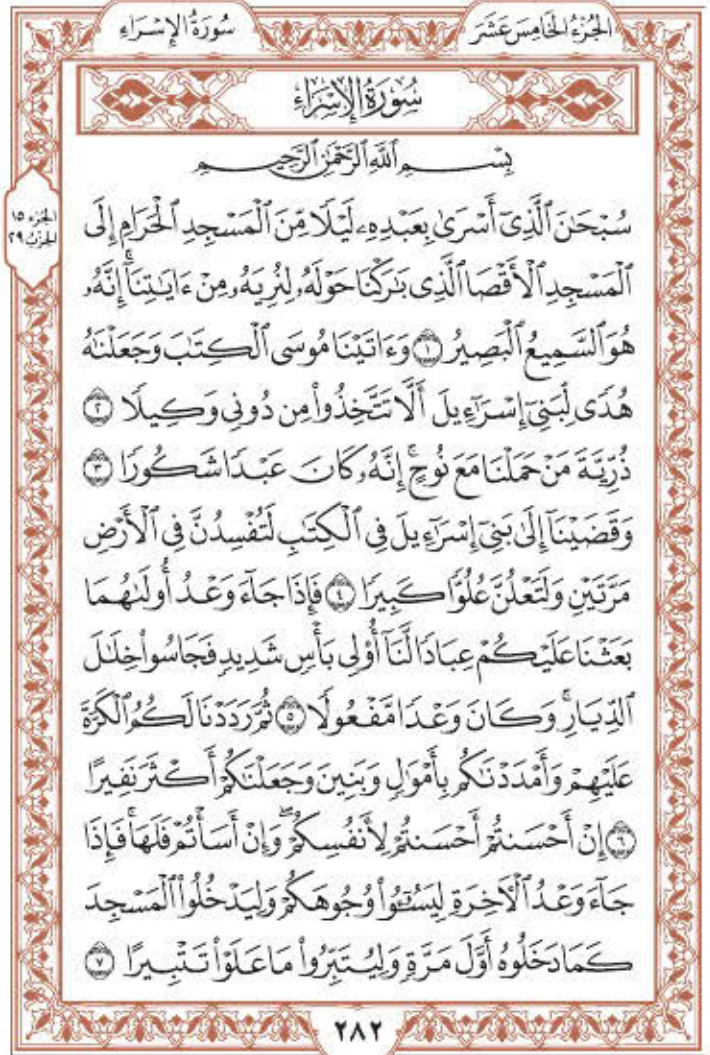 سُورَةُ الإِسْرَاءِ
الجُزْءُ الخَامِسَ عَشَرَ
سُورَةُ الإِسْرَاءِ
بِسْمِ ٱللَّهِ ٱلرَّحْمَٰنِ ٱلرَّحِيمِ
الجزء ١٥
الحزب ٢٩
سُبْحَٰنَ ٱلَّذِىٓ أَسْرَىٰ بِعَبْدِهِۦ لَيْلًا مِّنَ ٱلْمَسْجِدِ ٱلْحَرَامِ إِلَى
ٱلْمَسْجِدِ ٱلْأَقْصَا ٱلَّذِى بَٰرَكْنَا حَوْلَهُۥ لِنُرِيَهُۥ مِنْ ءَايَٰتِنَآۚ إِنَّهُۥ
هُوَ ٱلسَّمِيعُ ٱلْبَصِيرُ ١ وَءَاتَيْنَا مُوسَى ٱلْكِتَٰبَ وَجَعَلْنَٰهُ
هُدًى لِّبَنِىٓ إِسْرَٰٓءِيلَ أَلَّا تَتَّخِذُوا۟ مِن دُونِى وَكِيلًا ٢
ذُرِّيَّةَ مَنْ حَمَلْنَا مَعَ نُوحٍۚ إِنَّهُۥ كَانَ عَبْدًا شَكُورًا ٣
وَقَضَيْنَآ إِلَىٰ بَنِىٓ إِسْرَٰٓءِيلَ فِى ٱلْكِتَٰبِ لَتُفْسِدُنَّ فِى ٱلْأَرْضِ
مَرَّتَيْنِ وَلَتَعْلُنَّ عُلُوًّا كَبِيرًا ٤ فَإِذَا جَآءَ وَعْدُ أُولَىٰهُمَا
بَعَثْنَا عَلَيْكُمْ عِبَادًا لَّنَآ أُو۟لِى بَأْسٍ شَدِيدٍ فَجَاسُوا۟ خِلَٰلَ
ٱلدِّيَارِۚ وَكَانَ وَعْدًا مَّفْعُولًا ٥ ثُمَّ رَدَدْنَا لَكُمُ ٱلْكَرَّةَ
عَلَيْهِمْ وَأَمْدَدْنَٰكُم بِأَمْوَٰلٍ وَبَنِينَ وَجَعَلْنَٰكُمْ أَكْثَرَ نَفِيرًا
٦ إِنْ أَحْسَنتُمْ أَحْسَنتُمْ لِأَنفُسِكُمْۖ وَإِنْ أَسَأْتُمْ فَلَهَاۚ فَإِذَا
جَآءَ وَعْدُ ٱلْءَاخِرَةِ لِيَسُۥٓـُٔوا۟ وُجُوهَكُمْ وَلِيَدْخُلُوا۟ ٱلْمَسْجِدَ
كَمَا دَخَلُوهُ أَوَّلَ مَرَّةٍ وَلِيُتَبِّرُوا۟ مَا عَلَوْا۟ تَتْبِيرًا ٧
٢٨٢